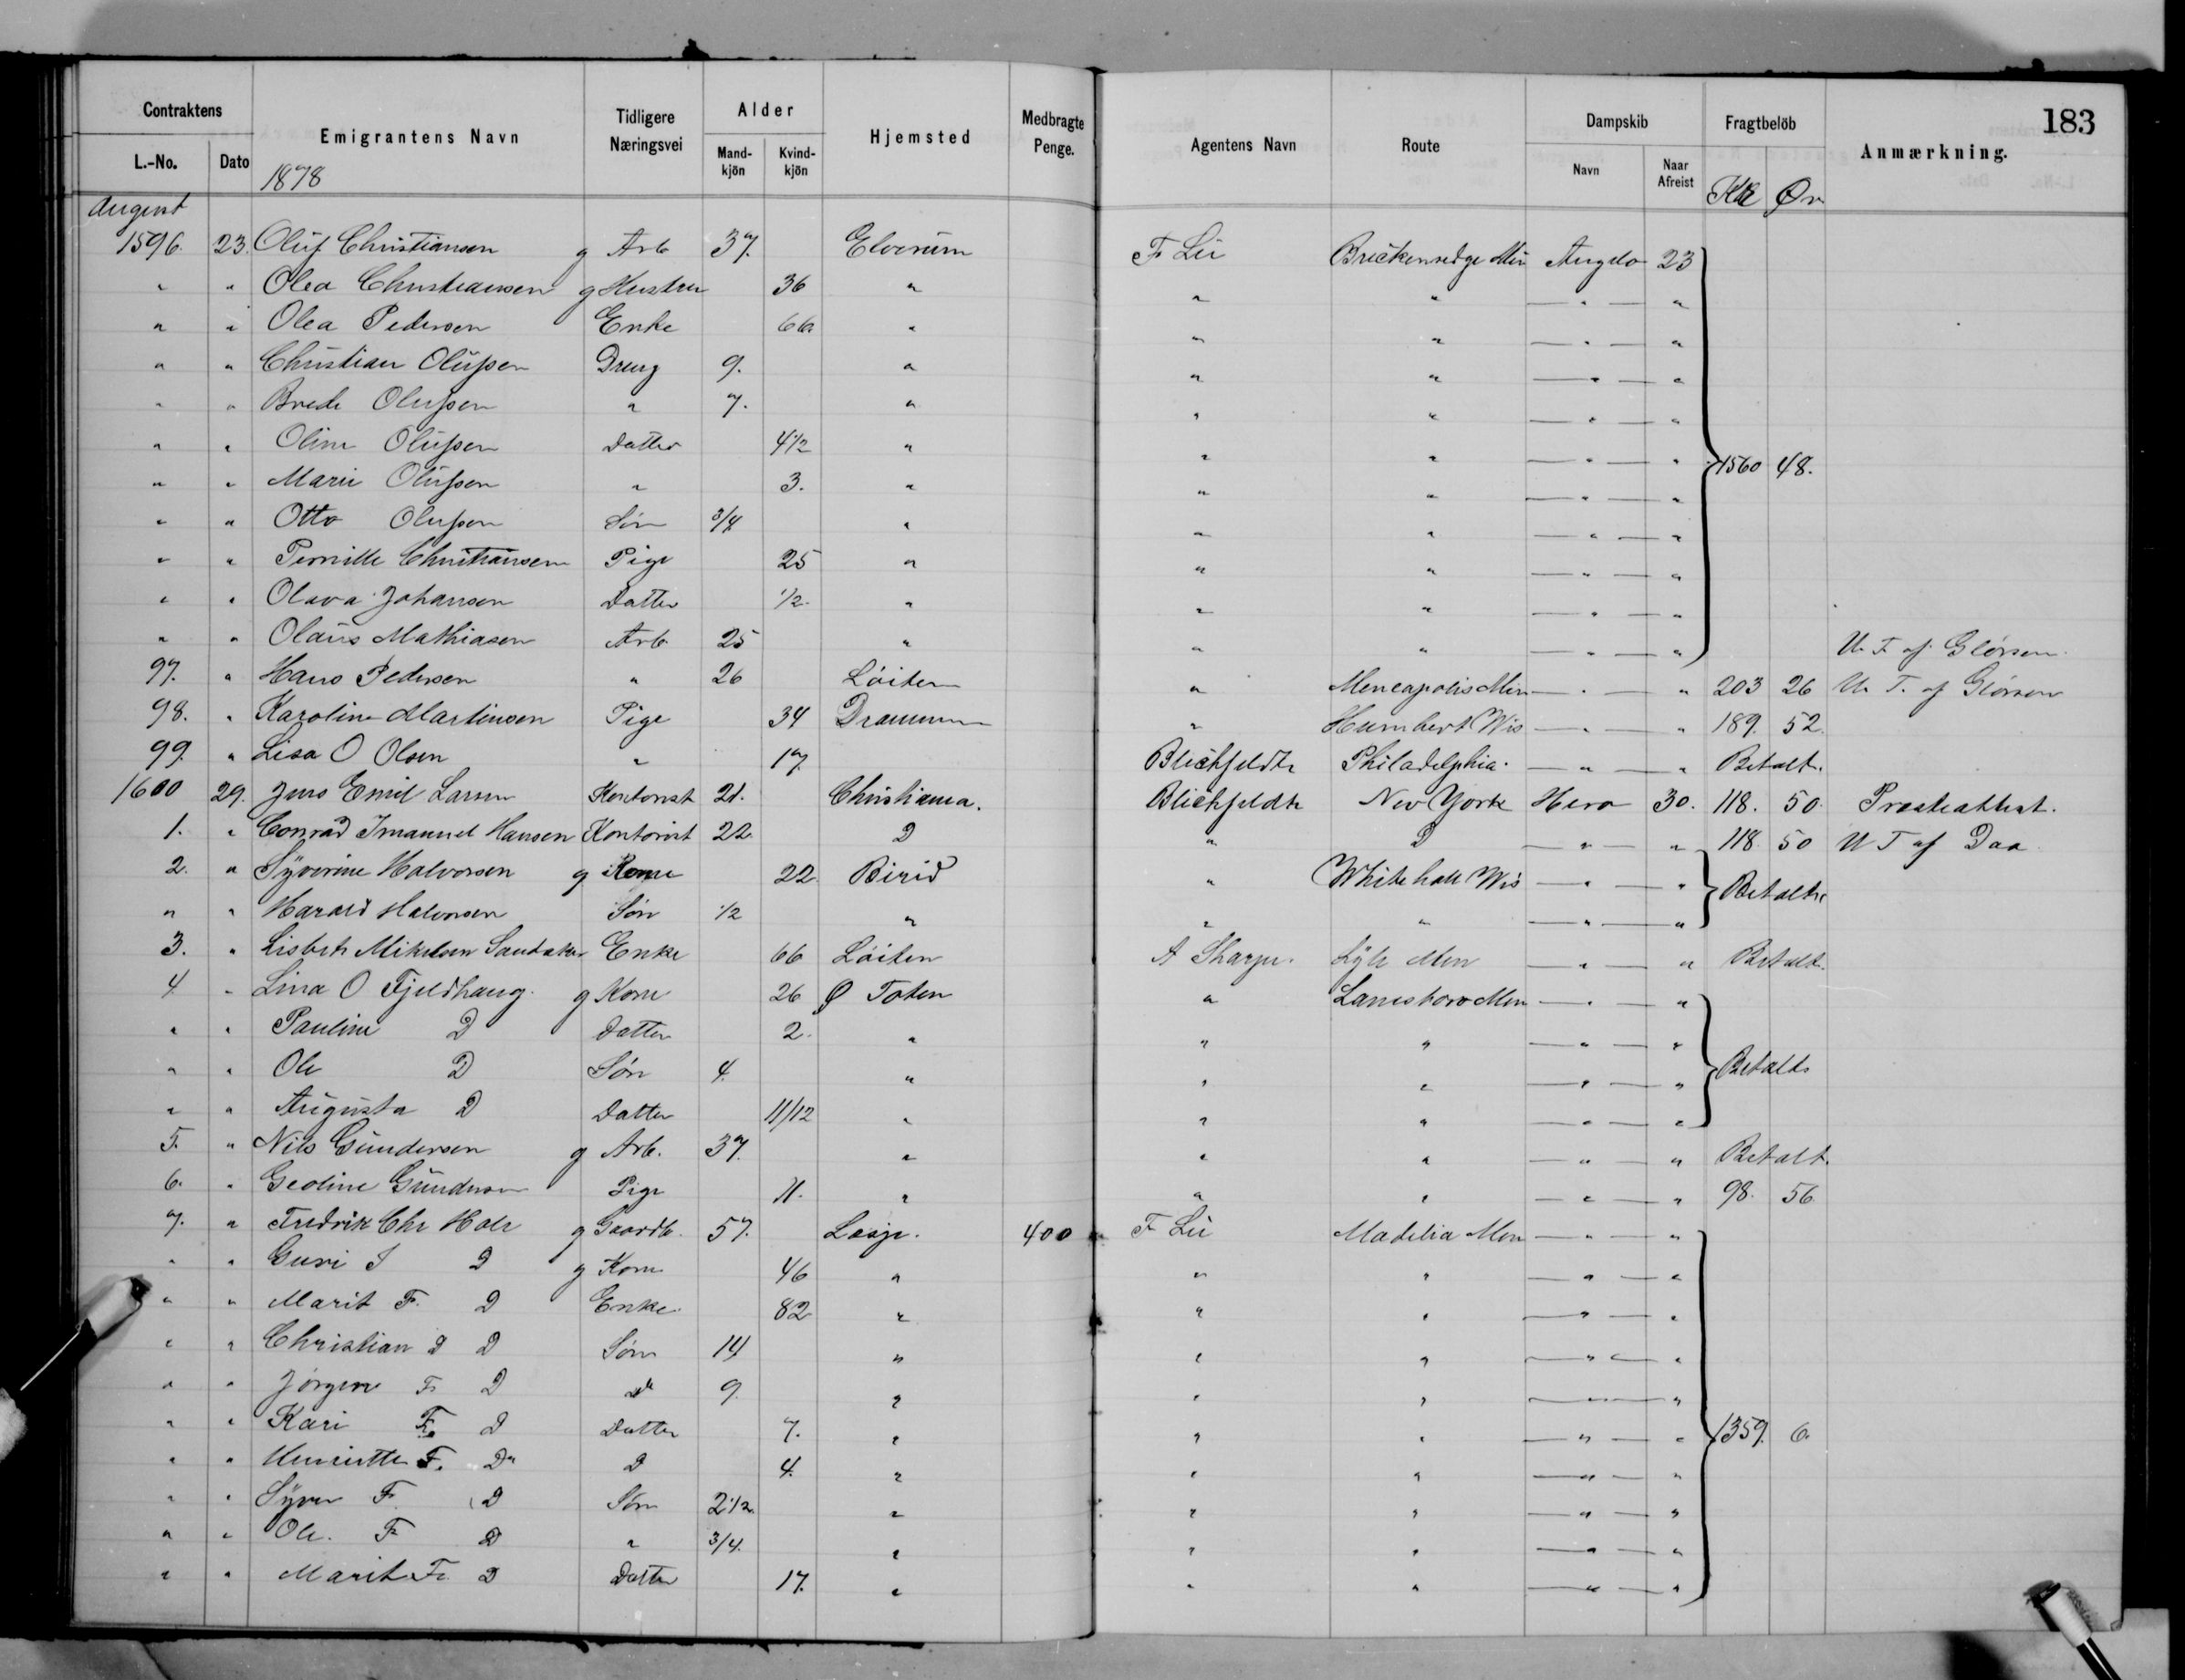 183
Contraktens Emigrantens Navn Tidligere Næringsvei Alder Hjemsted Medbragte Penge. Agentens Navn Route Dampskib Fragtbelöb Anmærkning.
L.-No. Dato 1878 Mand-kjön Kvind-kjön Navn Naar Afreist Kr Ør
August
1596. 23. Oluf Christiansen g Arb 37. Elverum F Lie Breckenredge Min Angelo 23
" " Olea Christiansen g Hustru 36 " " " " "
" " Olea Pedersen Enke 66 " " " " "
" " Christian Olufsen Dreng 9. " " " " "
" " Brede Olufsen " 7. " " " " "
" " Oline Olufsen Datter 4 1/2 " " " " " 1560 48.
" " Marie Olufsen " 3. " " " " "
" " Otto Olufsen Søn 3/4 " " " " "
" " Pernille Christiansen Pige 25 " " " " "
" " Olava Johansen Datter 1/2 " " " " "
" " Olaus Mathiasen Arb 25 " " " " " U. T. af Glørsen
97. " Hans Pedersen " 26 Løiten " Meneapolis Min " " 203 26 U. T. af Glørsen
98. " Karoline Martinsen Pige 34 Drammen " Humbert Wis " " 189. 52.
99. " Lisa O Olsen " 17. Blichfeldt Philadelphia. " " Betalt.
1600 29. Jens Emil Larsen Kontorist 21. Christiania. Blichfeldt New York Hero 30. 118. 50 Presteattest.
1. " Conrad Imanuel Hansen Kontorist 22. D " D " " 118. 50 U T af Daa
2. " Syverine Halvorsen g Kone 22. Birid " Whitehall Wis " " Betalt
" " Harald Halvorsen Søn 1/2 " " " " "
3. " Lisbeth Mikelsen Enke 66 Løiten A Sharpe. Lyle Men " " Betalt.
4 " Lina O Fjeldhaug. g Kone 26 Ø Toten " Lanesboro Men " "
" " Pauline D Datter 2. " " " " "
" " Ole D Søn 4. " " " " " Betalt
" " Augusta D Datter 11/12 " " " " "
5. " Nils Gundersen g Arb. 37. " " " " " Betalt.
6. " Gedline Gundersen Pige 11. " " " " " 98. 56
7. " Fredrik Chr Hole g Gaardb. 57. Lesje. 400 F Lie Madelia Men " "
" " Guri J D g Kone 46 " " " " "
" " Marit F. D Enke 82 " " " " "
" " Christian D Søn 14 " " " " "
" " Jørgen F D D 9. " " " " "
" " Kari F. D Datter 7. " " " " " 1359. 6.
" " Henriette F. Do D 4. " " " " "
" " Syver F. D Søn 2 1/2 " " " " "
" " Ole. F D " 3/4. " " " " "
" " Marit F. D Datter 17. " " " " "